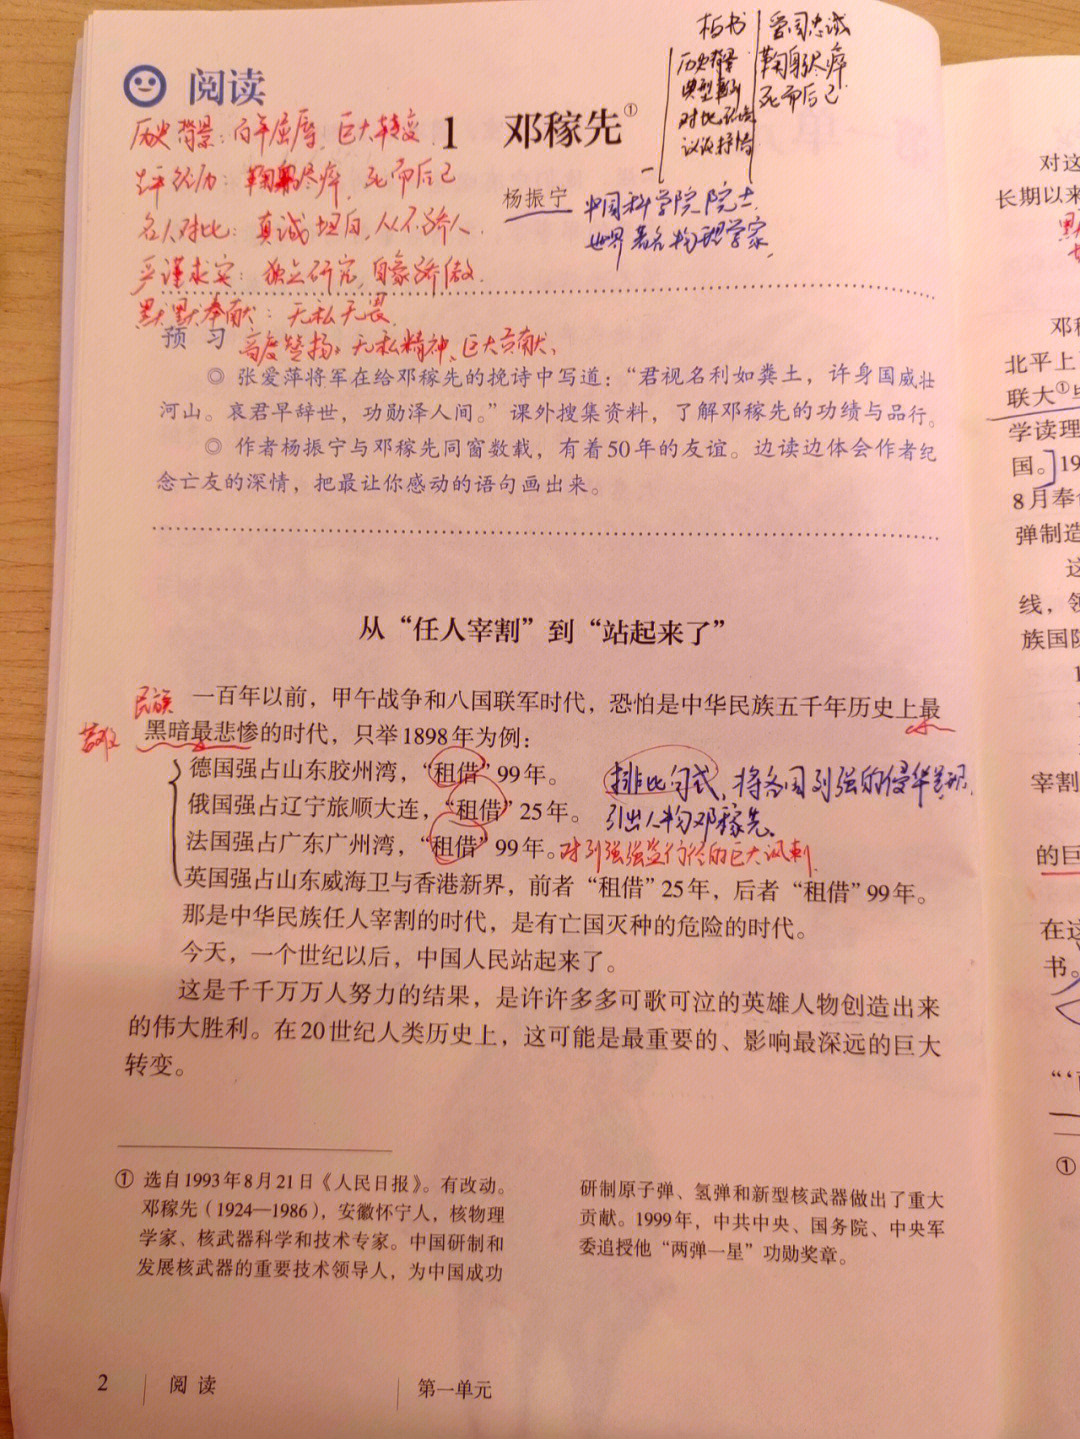 板书
历史背景
典型事例
对比
议论抒情
爱国忠诚
鞠躬尽瘁
死而后已
阅读
历史背景：百年屈辱，巨大转变
生平经历：鞠躬尽瘁 死而后已
名人对比：真诚坦白，从不骄人．
严谨求实：独立研究，自豪骄傲．
默默奉献：无私无畏
高度赞扬：无私精神、巨大贡献、
1 邓稼先①
杨振宁
中国科学院院士．
世界著名物理学家，
预 习
◎ 张爱萍将军在给邓稼先的挽诗中写道：“君视名利如粪土，许身国威壮
河山。哀君早辞世，功勋泽人间。”课外搜集资料，了解邓稼先的功绩与品行。
◎ 作者杨振宁与邓稼先同窗数载，有着50年的友谊。边读边体会作者纪
念亡友的深情，把最让你感动的语句画出来。
从“任人宰割”到“站起来了”
民族
一百年以前，甲午战争和八国联军时代，恐怕是中华民族五千年历史上最
黑暗最悲惨的时代，只举1898年为例：
德国强占山东胶州湾，“租借”99年。
俄国强占辽宁旅顺大连，“租借”25年。
法国强占广东广州湾，“租借”99年。
英国强占山东威海卫与香港新界，前者“租借”25年，后者“租借”99年。
排比句式，将各国列强的侵华
引出人物邓稼先、
对列强强盗行径的巨大讽刺
那是中华民族任人宰割的时代，是有亡国灭种的危险的时代。
今天，一个世纪以后，中国人民站起来了。
这是千千万万人努力的结果，是许许多多可歌可泣的英雄人物创造出来
的伟大胜利。在20世纪人类历史上，这可能是最重要的、影响最深远的巨大
转变。
① 选自1993年8月21日《人民日报》。有改动。
邓稼先（1924—1986），安徽怀宁人，核物理
学家、核武器科学和技术专家。中国研制和
发展核武器的重要技术领导人，为中国成功
研制原子弹、氢弹和新型核武器做出了重大
贡献。1999年，中共中央、国务院、中央军
委追授他“两弹一星”功勋奖章。
2 阅 读 第一单元
对这
长期以来
邓稼
北平上
联大①毕
学读理
国。19
8月奉命
弹制造
这
线，领
族国防
1
宰割
的巨
在这
书。
“‘
①